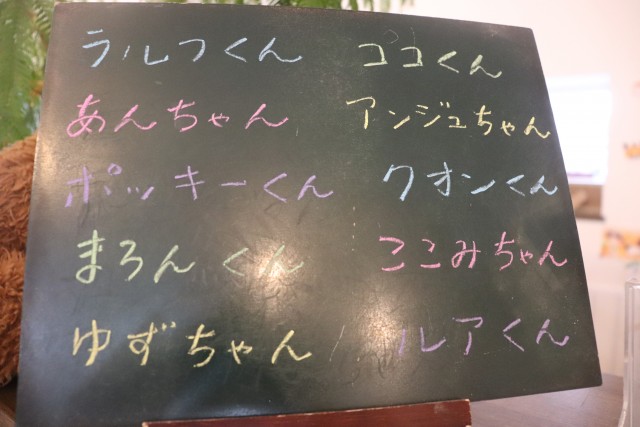 ラルフくん ココくん
あんちゃん アンジュちゃん
ポッキーくん クオンくん
まろんくん ここみちゃん
ゆずちゃん ルアくん